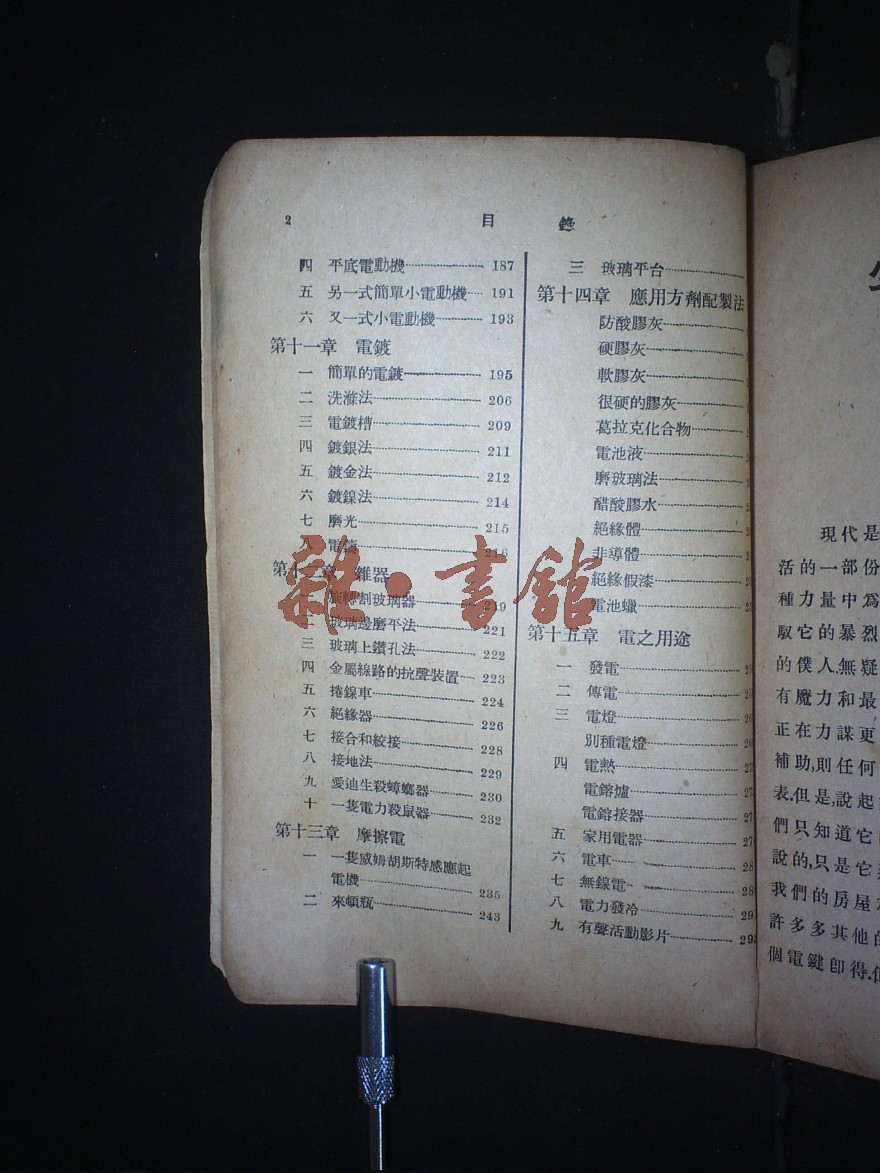 2 目錄
四 平底電動機 187
五 另一式簡單小電動機 191
六 又一式小電動機 193
第十一章 電鍍
一 簡單的電鍍 195
二 洗滌法 206
三 電鍍槽 209
四 鍍銀法 211
五 鍍金法 212
六 鍍鎳法 214
七 磨光 215
八 電鑄 216
第十二章 雜器
一 旋轉割玻璃器 219
二 玻璃邊磨平法 221
三 玻璃上鑽孔法 222
四 金屬線路的抗聲裝置 223
五 捲線車 224
六 絕緣器 226
七 接合和絞接 228
八 接地法 229
九 愛迪生殺蟑螂器 230
十 一隻電力殺鼠器 232
第十三章 摩擦電
一 一隻威姆胡斯特感應起
電機 235
二 來頓瓶 243
三 玻璃平台
第十四章 應用方劑配製法
防酸膠灰
硬膠灰
軟膠灰
很硬的膠灰
葛拉克化合物
電池液
磨玻璃法
醋酸膠水
絕緣體
非導體
絕緣假漆
電池蠟
第十五章 電之用途
一 發電
二 傳電
三 電燈
別種電燈
四 電熱
電鎔爐
電鎔接器
五 家用電器
六 電車
七 無線電
八 電力發冷
九 有聲活動影片
雜·書館
現代是
活的一部份
種力量中爲
馭它的暴烈
的僕人.無疑
有魔力和最
正在力謀更
補助,則任何
表.但是,說起
們只知道它
說的,只是它
我們的房屋
許多多其他
個電鍵卽得.